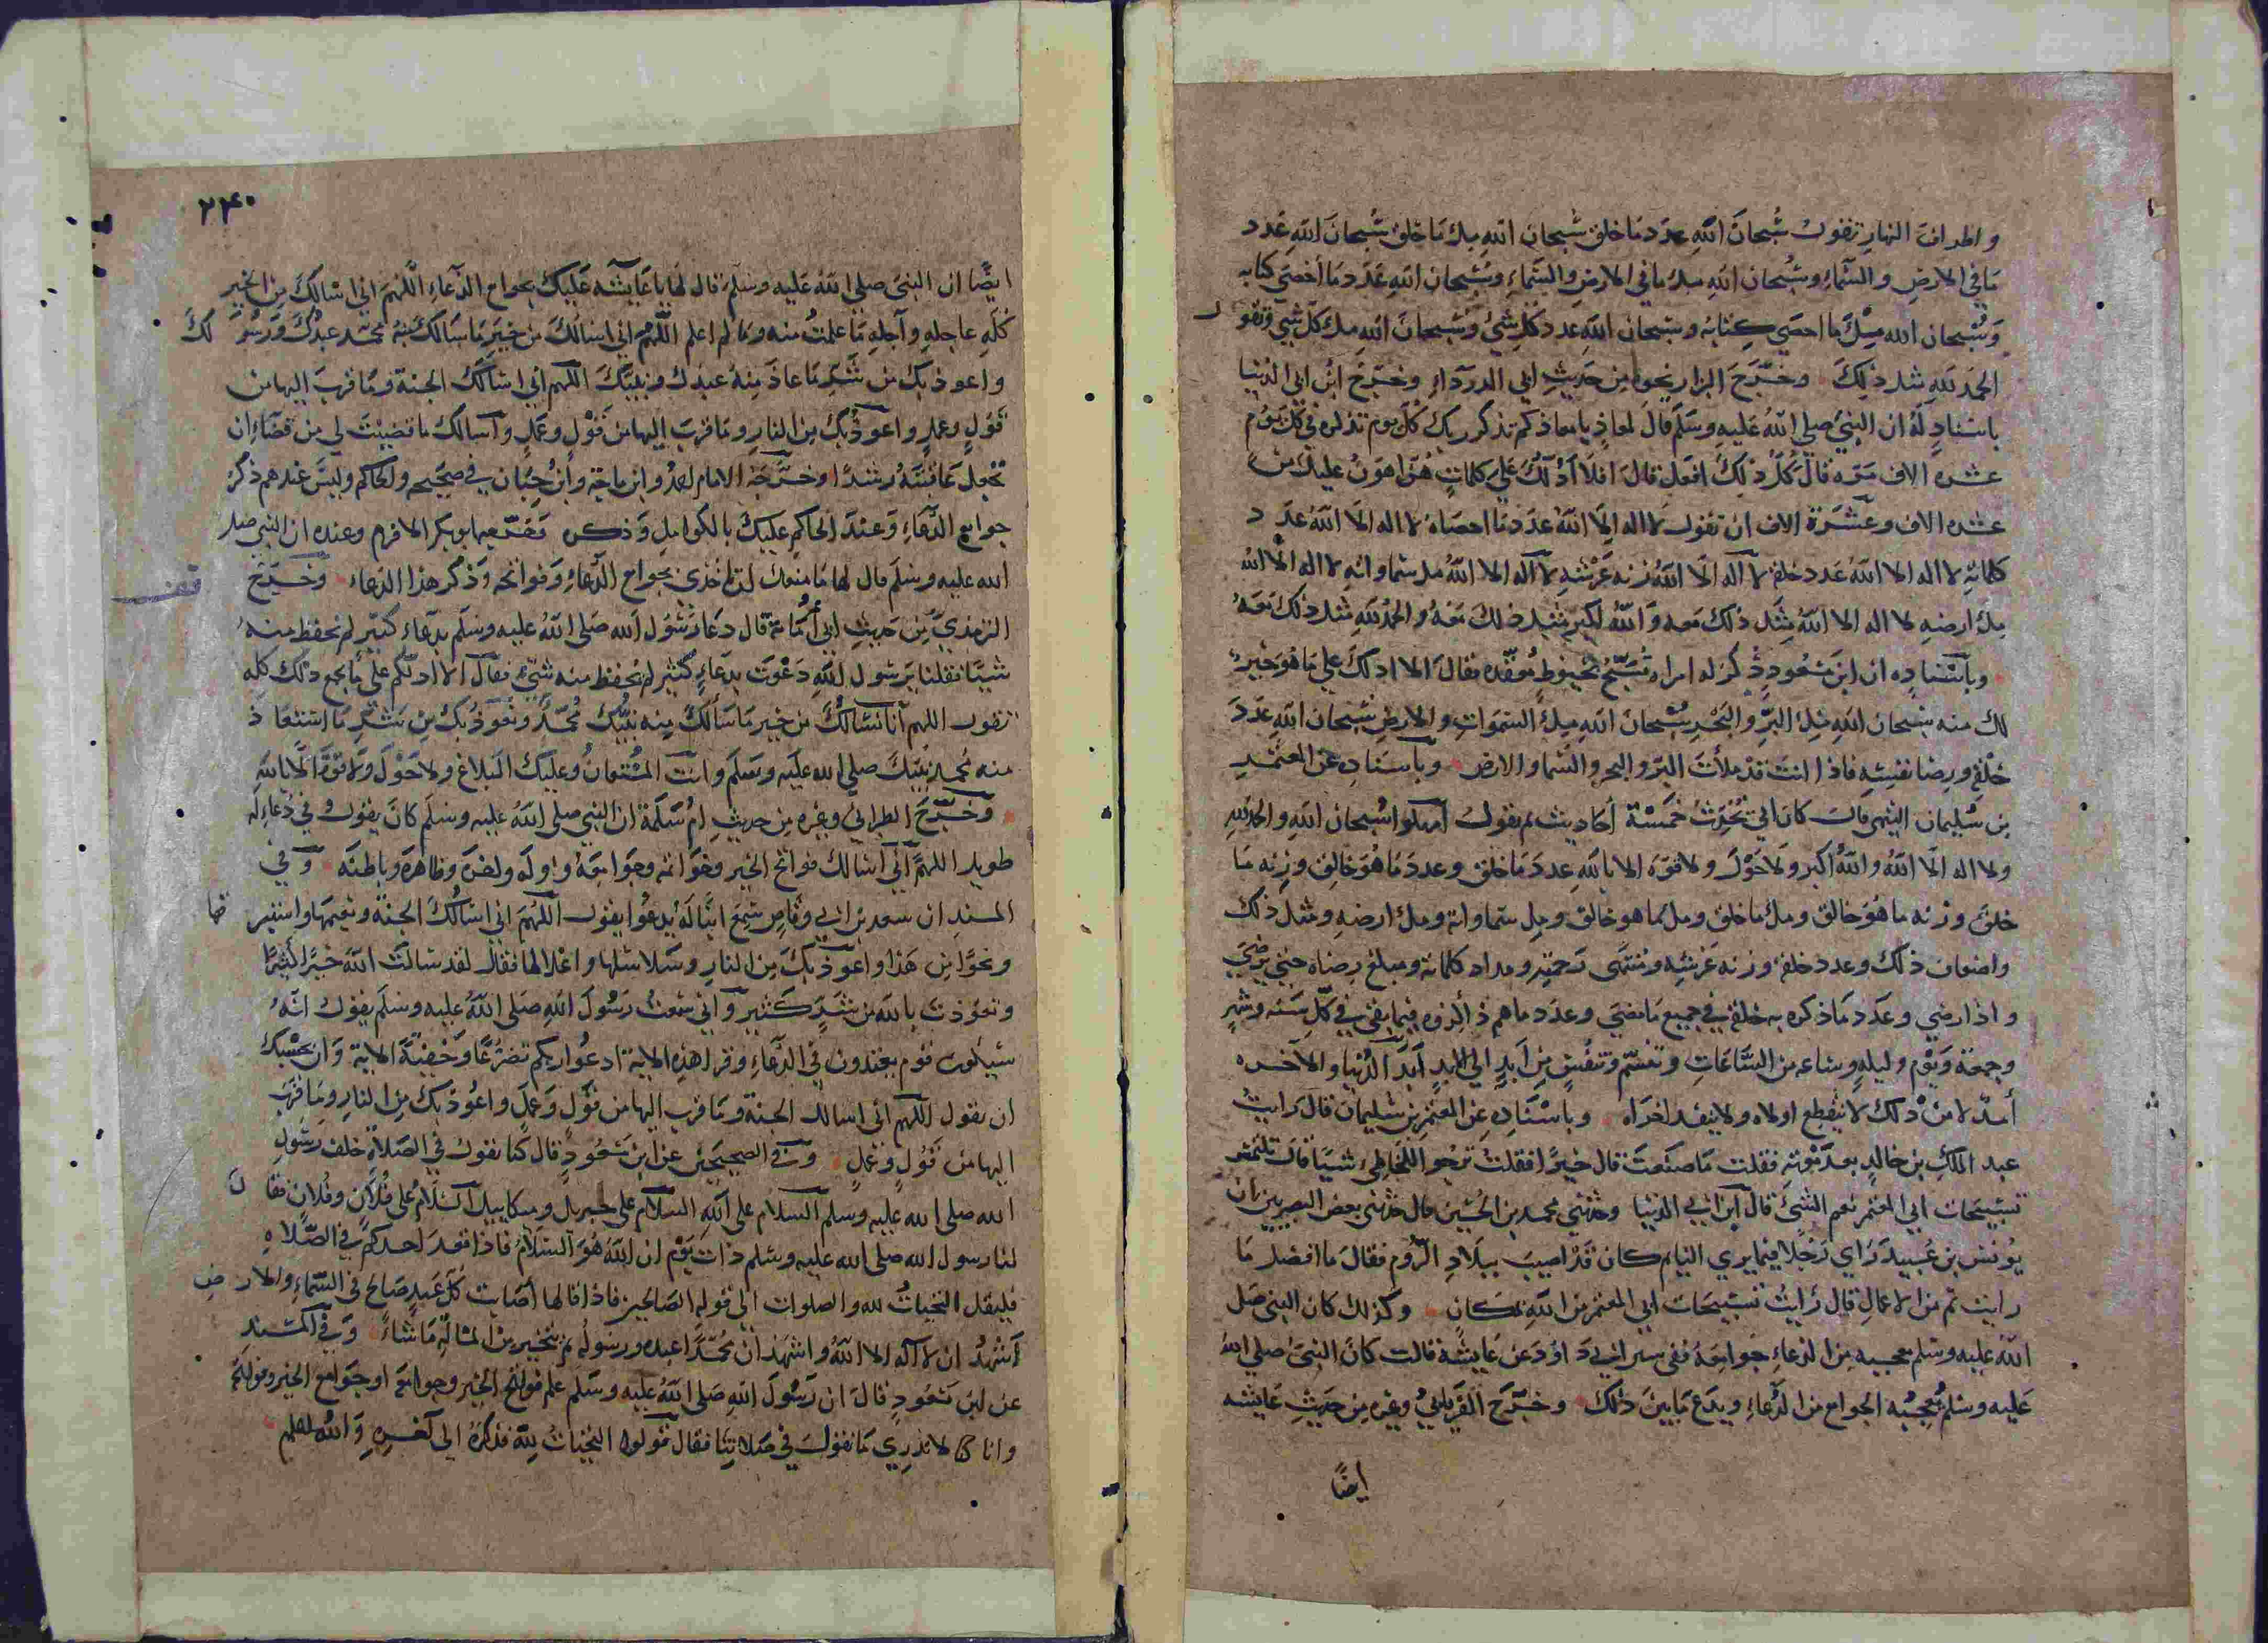 واطراف النهار تقول سُبحانَ اللّهِ عدد مَا خلق سُبحان اللهِ ملءَ مَا خلق سُبحانَ اللهِ عَدد
مَا في الارضِ والسَّمَاءِ وسُبحان اللهِ ملءَ ما في الارضِ والسَّمَاءِ وسُبحان اللهِ عَدَد مَا أحصَى كتابه
وَسُبحان الله مِلْءَ ما احصَى كِتابُه وسبحان اللهِ عدد كل شيءٍ وسُبحانَ اللهِ ملءَ كل شيءٍ وتقول
الحمدَ للهِ مثل ذلِكَ وخَرَّجَ البزار نحوه من حَديثِ ابي الدردَاءِ وخرَّجَ ابن ابي الدنيا
باسنادٍ لَهُ ان النبيَ صلي اللهُ عَليه وسَلَّم قالَ لمعاذٍ يا معاذ كم تذكر ربك كُل يوم تذكره في كل يَوْم
عشره الاف مَرّه قالَ كُلّ ذلِكَ افعَل قالَ افلَا أدُلّكَ عَلى كلماتٍ هُنّ اهوَنُ عليكَ من
عشره الاف وعَشَرَة الاف ان تقول لا اله إلّا اللّهُ عدَد مَا احصَاهُ لا اله الا اللّهُ عدَد
كلماتِه لا اله الا اللّهُ عَدد خلقه لا آله الّا اللّهُ زنه عَرْشِهِ لا آله الا اللّهُ ملء سماواتِهِ لا اله الا اللّهُ
ملءَ ارضِهِ لا اله الا اللّهُ مِثل ذلكَ معه وَاللّهُ اكبر مثل ذلكَ مَعهُ والحمدُ للهِ مثل ذلكَ مَعَهُ
وباسْنادِه ان ابنَ مَسْعودٍ ذُكرَ له امراه تُسَبّحُ بخيوطٍ مُعَقّدهٍ فقالَ الا ادلكَ علي مَا هُوَ خير
لك منه سُبحان اللهِ مِلءَ البرِّ والبَحْرِ سُبْحانَ اللهِ مِلءَ السَّموَاتِ والارض سُبحان اللهِ عَدَدَ
خلْقِهِ ورِضَا نفسِه فاذا انتَ قدْ ملأتَ البرّ والبحر والسَّما والارض وباسنادِ عن المعتمر
بن سُليمان التيمى قالَ كانَ ابي يُحَدّثُ خَمسَةَ أحَاديث ثم يقولُ أمهلوا سُبحان اللهِ والحمدُ للهِ
ولا اله الّا اللّهُ واللّهُ اكبر ولَا حَوْلَ ولا قوّه الا باللهِ عددَ مَا خلقَ وعددَ مَا هُوَ خالِق وزِنه مَا
خلقَ وزنه ما هُوَ خالق وملءَ ما خلق وملءَ ما هو خالِق ومِل سماواته وملءَ ارضِهِ ومثل ذلكَ
واضعاف ذلكَ وعدد خلقه وزنه عَرْشِه ومُنتهَى رَحمتِهِ ومِداد كلماته ومبلغ رِضاه حتي يَرضَي
واذا رضِي وعَدَد مَا ذكره بِه خلقه في جميع مَا مَضي وعدَد ما هم ذاكِروه فيما بقي في كلّ سَنه وشهرٍ
وجمعَة وَيوْمٍ وليلهٍ وسَاعه من السَّاعَاتِ وتنسّم وتنفّسٍ مِن أبدٍ الي الابدِ أبَدَ الدُّنيا والآخره
أمدّ لا من ذلكَ لا ينقطِع اولاه ولا ينفد اخراه وباسنَادِهِ عن المعتمِر بن سُليمان قالَ رَايت
عبد الملِكِ بن خالدٍ بعد مَوْته فقلت مَا صنَعتَ قال خيراً فقلت ترجُو للخاطِئِ شيئًا قالَ تلتمسُ
تسبيحَات ابي المعتمر نعم الشئُ قالَ ابن ابي الدنيا وحدّثني محمد بن الحُسَين قال حدّثني بعض البصريين ان
يُونس بن عُبيد رَاي رَجُلًا فيما يري النايم كان قدْ اصيبَ ببلادِ الرُّومِ فقالَ ما افضل مَا
رايت ثم من الاعمَالِ قال رَأيتُ تسبيحَات ابي المعتمر من اللهِ بمكَان وكذلك كان النبي صَلي
اللّهُ عليه وسَلم يعجبه من الدعاءِ جوامِعَهُ ففي سنن ابي داوُد عن عايشَة قالت كانَ النبيُّ صلي اللهُ
عَليه وسَلم يُعجِبُه الجوامع من الدُّعاءِ ويدَع مَا بينَ ذلكَ وخرَّج الفِريابيُّ وغيره من حَديثِ عَايشه
ايضًا
٢٢٤٠
ايضًا ان النبيَ صلي اللهُ عَليه وسَلّم قال لهَا يا عَايشه عَليكِ بجوامع الدعَاءِ اللّهُمّ اني اسَالكَ من الخير
كُلّهِ عاجلهِ وآجلِهِ مَا علمتُ منه ومَا لم اعلم اللّهُمّ اني اسَالكَ من خَيرِ مَا سَالكَ منهُ محمّد عبدُكَ وَرَسُولكَ
واعوذ بكَ من شَرّ مَا عاذَ مِنهُ عبدك ونبيكَ اللهُم اني اسَالكَ الجنة ومَا قربَ اليها من
قولٍ وعملٍ واعوذُ بكَ من النارِ ومَا قربَ اليها من قَوْلٍ وعَملٍ وأسَالكَ ما قضيْتَ لي من قضَاءٍ ان
تجعل عَاقبَتَهُ رشدًا وخرَّجَهُ الامام احمدُ وابن مَاجَة وابنُ حِبَّان في صَحِيحِه والحاكم وليسَ عندهم ذكرُ
جوامع الدّعَاءِ وَعندَ الحاكم عليكَ بالكوامِلِ وَذكره وَخرّجه ابو بكر الاثرم وعنده ان النبي صلى
الله عليه وسَلم قال لها مَا منعك ان تاخذي بجوامع الدُّعَاءِ وَفواتحِه وَذكر هذا الدعاء وخَرّجَ
الترمذيُّ من حَديثِ ابي أُمَامَة قال دعَا رَسُولُ الله صَلى اللهُ عليه وسَلم بدعَاءٍ كثيرٍ لم نحفظ منه
شيئًا فقلنا يَرَسُول اللهِ دَعَوْتَ بدعَاءٍ كثير لم نحفظ منه شيئ فقالَ الا ادلّكم على مَا يجمع ذلكَ كله
تقول اللهم انا نسَالُكَ من خير مَا سَألكَ مِنه نبيّكَ مُحمّد ونعوذُ بك من شَرّ مَا استعَاذ
منه مُحمد نبيّكَ صلي الله عليه وسَلم وانت المُسْتعانُ وعليكَ البَلاغ ولا حَوْلَ ولا قوّة الّا باللهِ
وَخَرَّجَ الطبراني وغيره من حَديثِ امُ سَلمَة ان النبي صلي اللهُ عليه وسَلم كانَ يقولُ في دُعَاءٍ له
طويل اللهمّ اني اسَالكَ فواتح الخير وخوَاتمه وجوَامِعَهُ واوله واخره وظاهره وباطنَه وَفي
المسندِ ان سعد بن ابي وقاصٍ سَمِعَ ابنًا لَهُ يدعُوا يقول اللّهُمّ اني اسَالكَ الجنةَ ونعيمَها واستبرقها
ونحوًا من هَذا واعوذ بكَ من النارِ وسَلاسلها واغلالها فقالَ لقد سَالتَ اللهَ خيرًا كثيرًا
وتعوّذتَ باللهِ من شَرٍّ كثيرٍ واني سَمعتُ رَسُولَ اللهِ صَلى اللهُ عليه وسَلم يقول انّهُ
سَيكون قوم يعتدون في الدُّعَاءِ وقرا هذهِ الاية ادعُوا ربكم تضرُّعًا وَخُفيَةً الاية وَان بحسْبكَ
ان تقول اللهم اني اسالك الجنة ومَا قرب اليها من قولٍ وَعَملٍ واعُوذ بكَ من النارِ ومَا قرَّبَ
اليها من قَولٍ وعملٍ وَفي الصحيحين عن ابن مَسْعُودٍ قال كنا نقولُ في الصلاة خلف رَسُولِ
الله صلى الله عليه وسلم السلام على اللهِ السلام على جبريل وميكاييل السلام على فُلانٍ وفُلان فقال
لنا رسول الله صلى الله عليه وسلم ذات يَوْمٍ ان اللهَ هُوَ السلامُ فاذا قعدَ احدكم في الصلاه
فليقل التحيات لله والصلوات الي قوله الصَالحين فاذا قالها أصَابت كُلّ عَبدٍ صَالح في السَّمَاءِ والارض
أشهدُ ان لا آله الا اللهُ واشهدُ ان مُحمّدًا عبدُه ورسُوله ثم يتخير من المسَالَة مَا شاءَ وَفي المسْندِ
عن ابن مَسْعُودٍ قالَ ان رَسُولَ اللهِ صَلى اللهُ عليه وسَلم علم فواتح الخير وجوامعَهُ او جَوامع الخير وفواتحَهُ
وانا كنا لا نَدْرِي مَا نقول في صَلاتِنَا فقال قولوا التحياتُ للهِ فذكره الى آخِرِهِ وَاللهُ اعلم